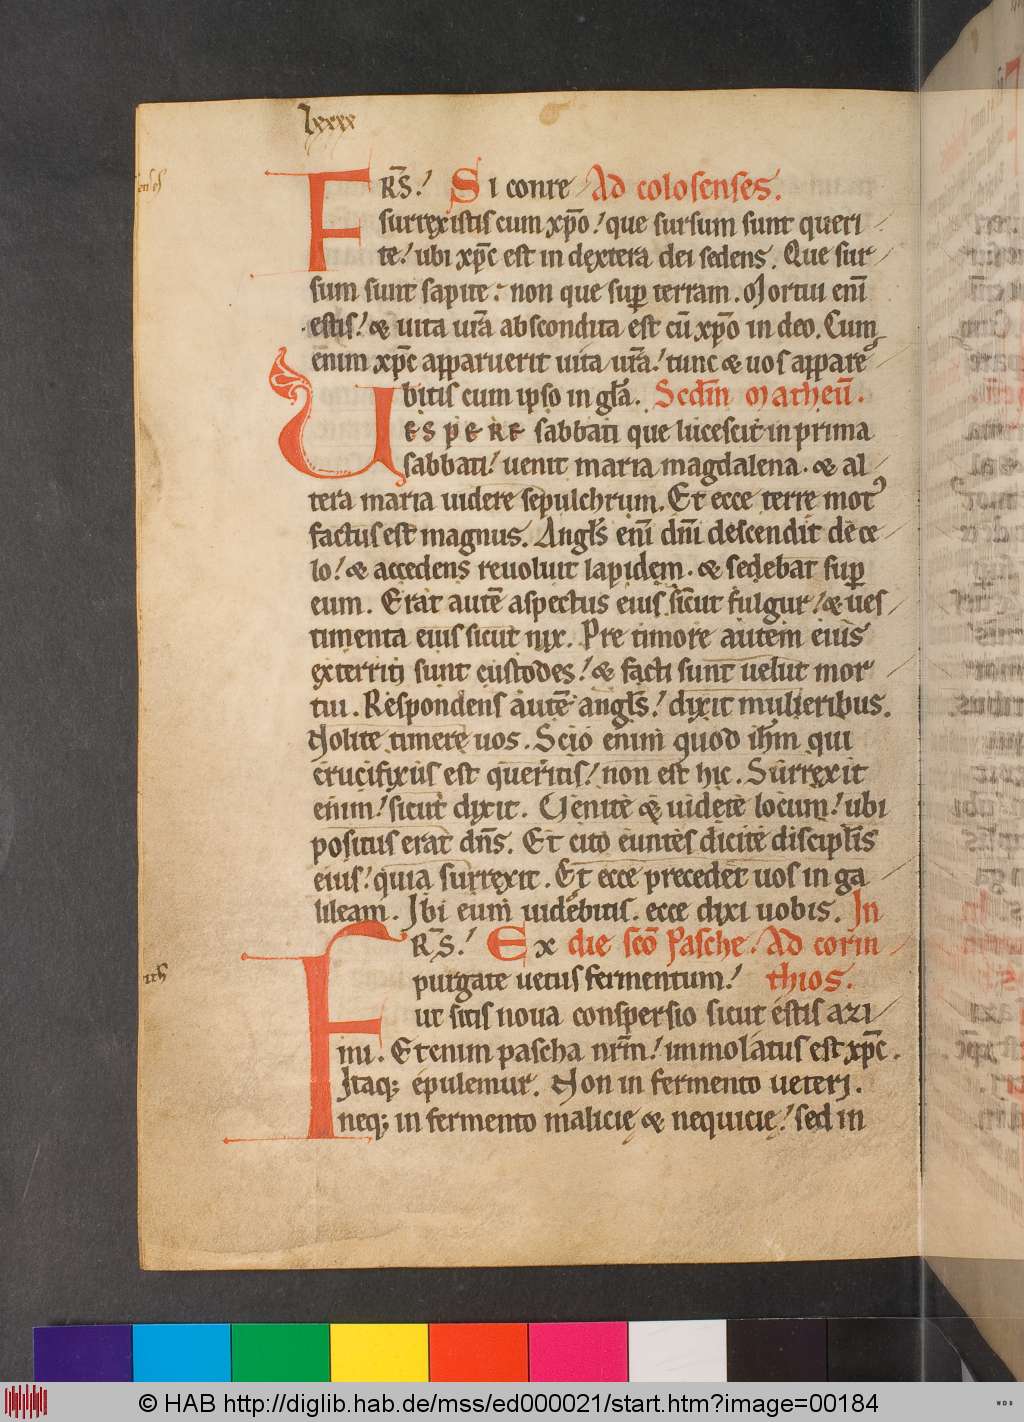 lxxxx
FRS̅! Si conre Ad colosenses.
surrexistis cum xp̅o! que sursum sunt queri
te! ubi xp̅c est in dextera dei sedens. Que sur
sum sunt sapite: non que sup̱ terram. Mortui eni̅
estis! & uita ur̅a abscondita est cu̅ xp̅o in deo. Cum
enim xp̅c apparuerit uita ur̅a! tunc & uos appare
bitis cum ipso in gl̅a. Scd̅m Matheu̅.
UESPERE sabbati que lucescit in prima
sabbati! uenit maria magdalena. & al
tera maria uidere sepulchrum. Et ecce terre motꝰ
factus est magnus. Angl̅s eni̅ dn̅i descendit de ce
lo! & accedens reuoluit lapidem. & sedebat sup̱
eum. Erat aute̅ aspectus eius sicut fulgur! & ues
timenta eius sicut nix. Pre timore autem eius
ęxterriti sunt custodes! & facti sunt uelut mor
tui. Respondens aute̅ angl̅s! dixit mulieribus.
Nolite timere uos. Scio enim quod ih̅m qui
crucifixus est queritis! non est hic. Surrexit
enim! sicut dixit. Uenite & uidete locum! ubi
positus erat dn̅s. Et cito euntes dicite discipl̅is
eius! quia surrexit. Et ecce precedet uos in ga
lileam. Ibi eum uidebitis. ecce dixi uobis. In
FRS̅! Ex die sco̅ Pasche. Ad corin
purgate uetus fermentum! thios.
ut sitis noua conspersio sicut estis azi
mi. Etenim pascha nr̅m! immolatus est xp̅c.
Itaq; epulemur. Non in fermento ueteri.
neq; in fermento malicię & nequicię! sed in
© HAB http://diglib.hab.de/mss/ed000021/start.htm?image=00184